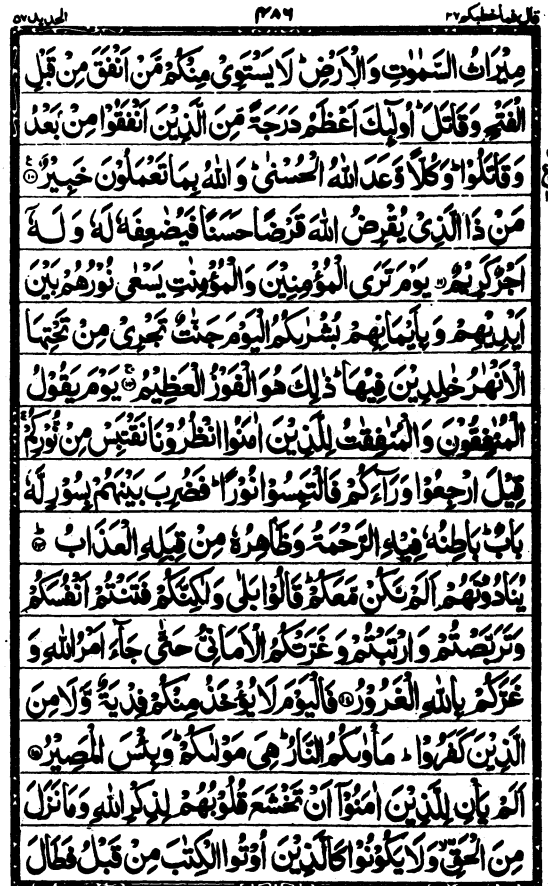 قال فما خطبكم ٢٧ ٤٨٦ الحديد ٥٧
مِيْرَاثُ السَّمٰوٰتِ وَالْاَرْضِ ؕ لَا يَسْتَوِىْ مِنْكُمْ مَّنْ اَنْفَقَ مِنْ قَبْلِ
الْفَتْحِ وَقَاتَلَ ؕ اُولٰٓئِكَ اَعْظَمُ دَرَجَةً مِّنَ الَّذِيْنَ اَنْفَقُوْا مِنْۢ بَعْدُ
وَقَاتَلُوْا ؕ وَكُلًّا وَّعَدَ اللّٰهُ الْحُسْنٰى ؕ وَاللّٰهُ بِمَا تَعْمَلُوْنَ خَبِيْرٌ ۝١٠
مَنْ ذَا الَّذِىْ يُقْرِضُ اللّٰهَ قَرْضًا حَسَنًا فَيُضٰعِفَهٗ لَهٗ وَ لَهٗۤ
اَجْرٌ كَرِيْمٌ ۝١١ يَوْمَ تَرَى الْمُؤْمِنِيْنَ وَالْمُؤْمِنٰتِ يَسْعٰى نُوْرُهُمْ بَيْنَ
اَيْدِيْهِمْ وَ بِاَيْمَانِهِمْ بُشْرٰىكُمُ الْيَوْمَ جَنّٰتٌ تَجْرِىْ مِنْ تَحْتِهَا
الْاَنْهٰرُ خٰلِدِيْنَ فِيْهَا ؕ ذٰلِكَ هُوَ الْفَوْزُ الْعَظِيْمُ ۝١٢ يَوْمَ يَقُوْلُ
الْمُنٰفِقُوْنَ وَ الْمُنٰفِقٰتُ لِلَّذِيْنَ اٰمَنُوا انْظُرُوْنَا نَقْتَبِسْ مِنْ نُّوْرِكُمْ ۚ
قِيْلَ ارْجِعُوْا وَرَآءَكُمْ فَالْتَمِسُوْا نُوْرًا ؕ فَضُرِبَ بَيْنَهُمْ بِسُوْرٍ لَّهٗ
بَابٌ ؕ بَاطِنُهٗ فِيْهِ الرَّحْمَةُ وَظَاهِرُهٗ مِنْ قِبَلِهِ الْعَذَابُ ؕ ۝١٣
يُنَادُوْنَهُمْ اَلَمْ نَكُنْ مَّعَكُمْ ؕ قَالُوْا بَلٰى وَلٰكِنَّكُمْ فَتَنْتُمْ اَنْفُسَكُمْ
وَتَرَبَّصْتُمْ وَارْتَبْتُمْ وَ غَرَّتْكُمُ الْاَمَانِىُّ حَتّٰى جَآءَ اَمْرُ اللّٰهِ وَ
غَرَّكُمْ بِاللّٰهِ الْغَرُوْرُ ۝١٤ فَالْيَوْمَ لَا يُؤْخَذُ مِنْكُمْ فِدْيَةٌ وَّلَا مِنَ
الَّذِيْنَ كَفَرُوْا ؕ مَاْوٰىكُمُ النَّارُ ؕ هِىَ مَوْلٰىكُمْ ؕ وَبِئْسَ الْمَصِيْرُ ۝١٥
اَلَمْ يَاْنِ لِلَّذِيْنَ اٰمَنُوْۤا اَنْ تَخْشَعَ قُلُوْبُهُمْ لِذِكْرِ اللّٰهِ وَ مَا نَزَلَ
مِنَ الْحَقِّ ۙ وَلَا يَكُوْنُوْا كَالَّذِيْنَ اُوْتُوا الْكِتٰبَ مِنْ قَبْلُ فَطَالَ